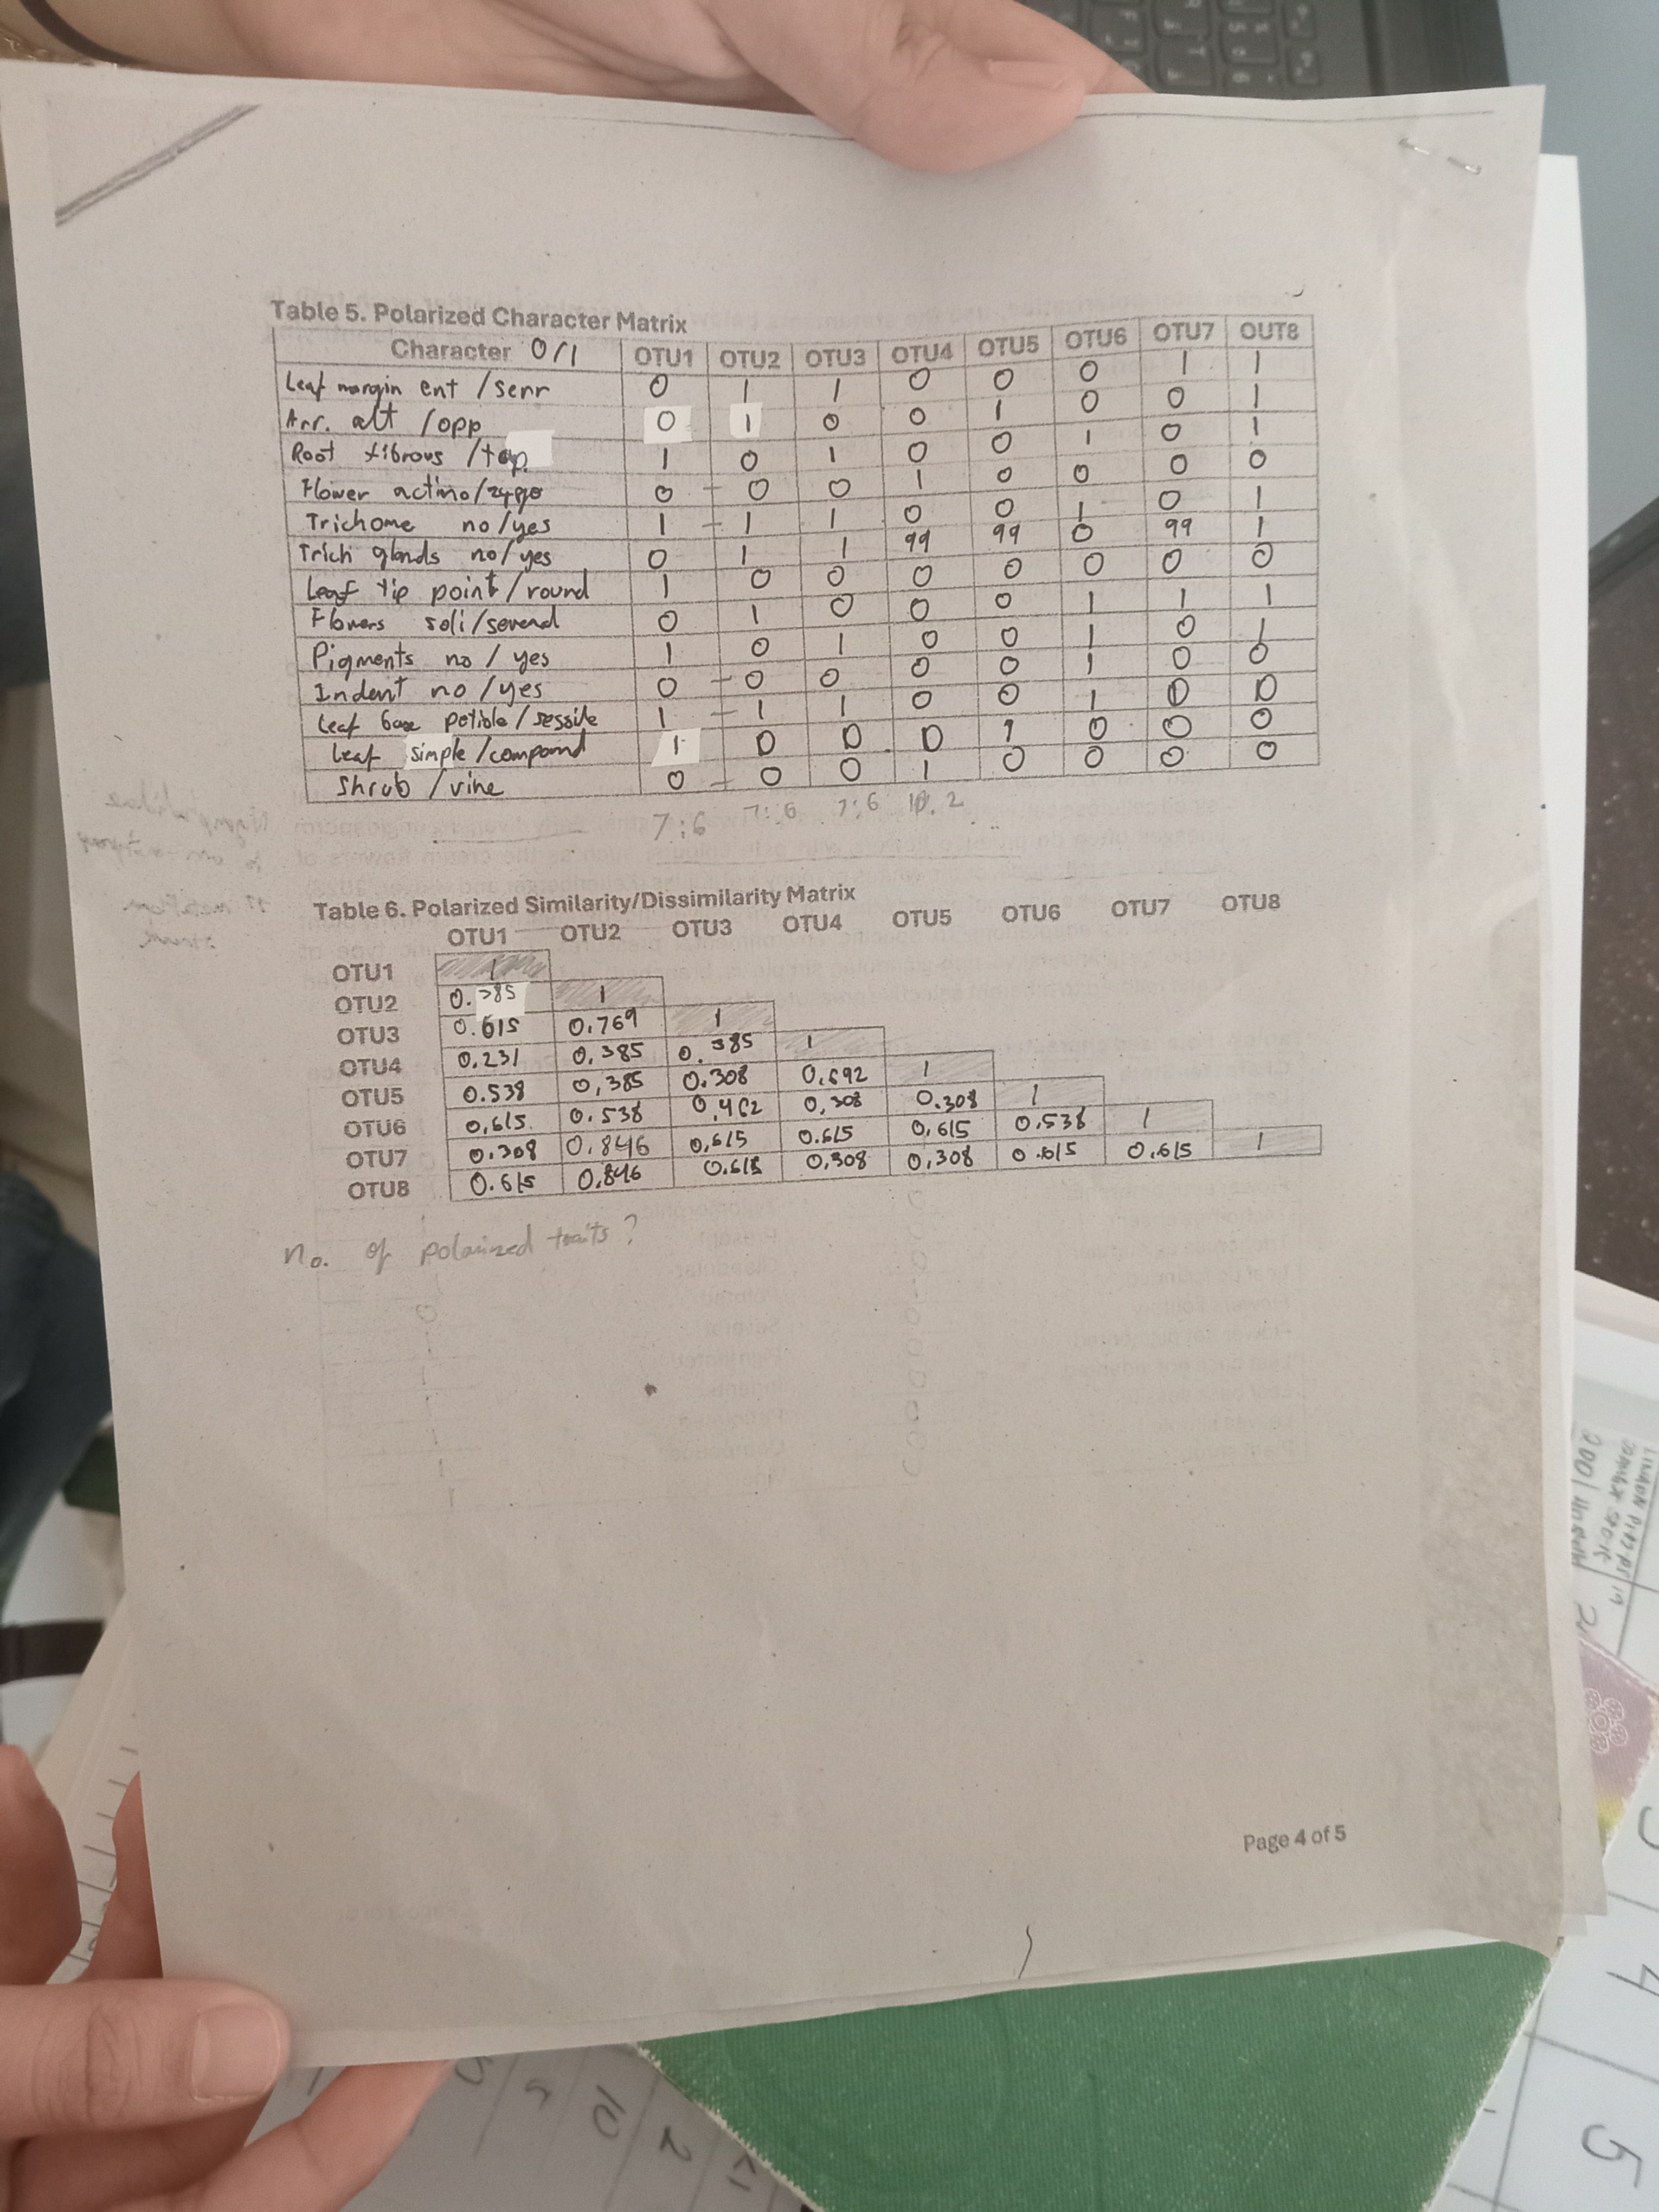 Table 5. Polarized Character Matrix
Character 0/1 OTU1 OTU2 OTU3 OTU4 OTU5 OTU6 OTU7 OUT8
Leaf margin ent /serr 0 1 1 0 0 0 1 1
Arr. alt /opp 0 1 0 0 1 0 0 1
Root fibrous /tap. 1 0 1 0 0 1 0 1
Flower actino/zygo 0 0 0 1 0 0 0 0
Trichome no/yes 1 1 1 0 0 1 0 1
Trich glands no/yes 0 1 1 99 99 0 99 1
Leaf tip point/round 1 0 0 0 0 0 0 0
Flowers soli/several 0 1 0 0 0 1 1 1
Pigments no / yes 1 0 1 0 0 1 0 1
Indent no /yes 0 0 0 0 0 1 0 0
Leaf base /sessile 1 1 1 0 0 1 0 0
Leaf simple/compound 1 0 0 0 1 0 0 0
Shrub /vine 0 0 0 1 0 0 0 0
7:6 7:6 7:6
Table 6. Polarized Similarity/Dissimilarity Matrix
OTU1 OTU2 OTU3 OTU4 OTU5 OTU6 OTU7 OTU8
OTU1 1
OTU2 0.385 1
OTU3 0.615 0.769 1
OTU4 0.231 0.385 0.385 1
OTU5 0.538 0,385 0.308 0.692 1
OTU6 0.615 0.538 0.462 0,308 0.308 1
OTU7 0.308 0.846 0.615 0.615 0.615 0.538 1
OTU8 0.615 0.846 0.615 0,308 0.308 0.615 0.615 1
no. of polarized traits?
Page 4 of 5